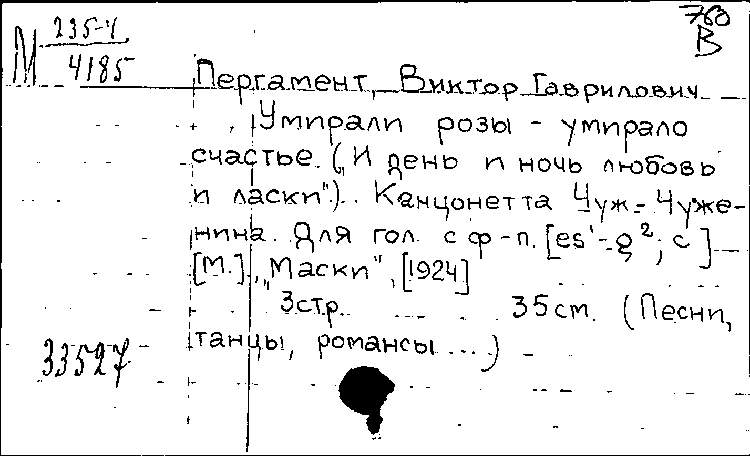 760
В
М 235-4
4185
Пергамент, Виктор Гаврилович
Умирали розы - умирало
счастье. („И день и ночь любовь
и ласки"). Канцонетта Чуж-Чуже-
нина. Для гол. с ф-п. [es¹-g²; c]
[М.], „Маски", [1924]
3стр. 35см. (Песни,
танцы, романсы ...)
33527